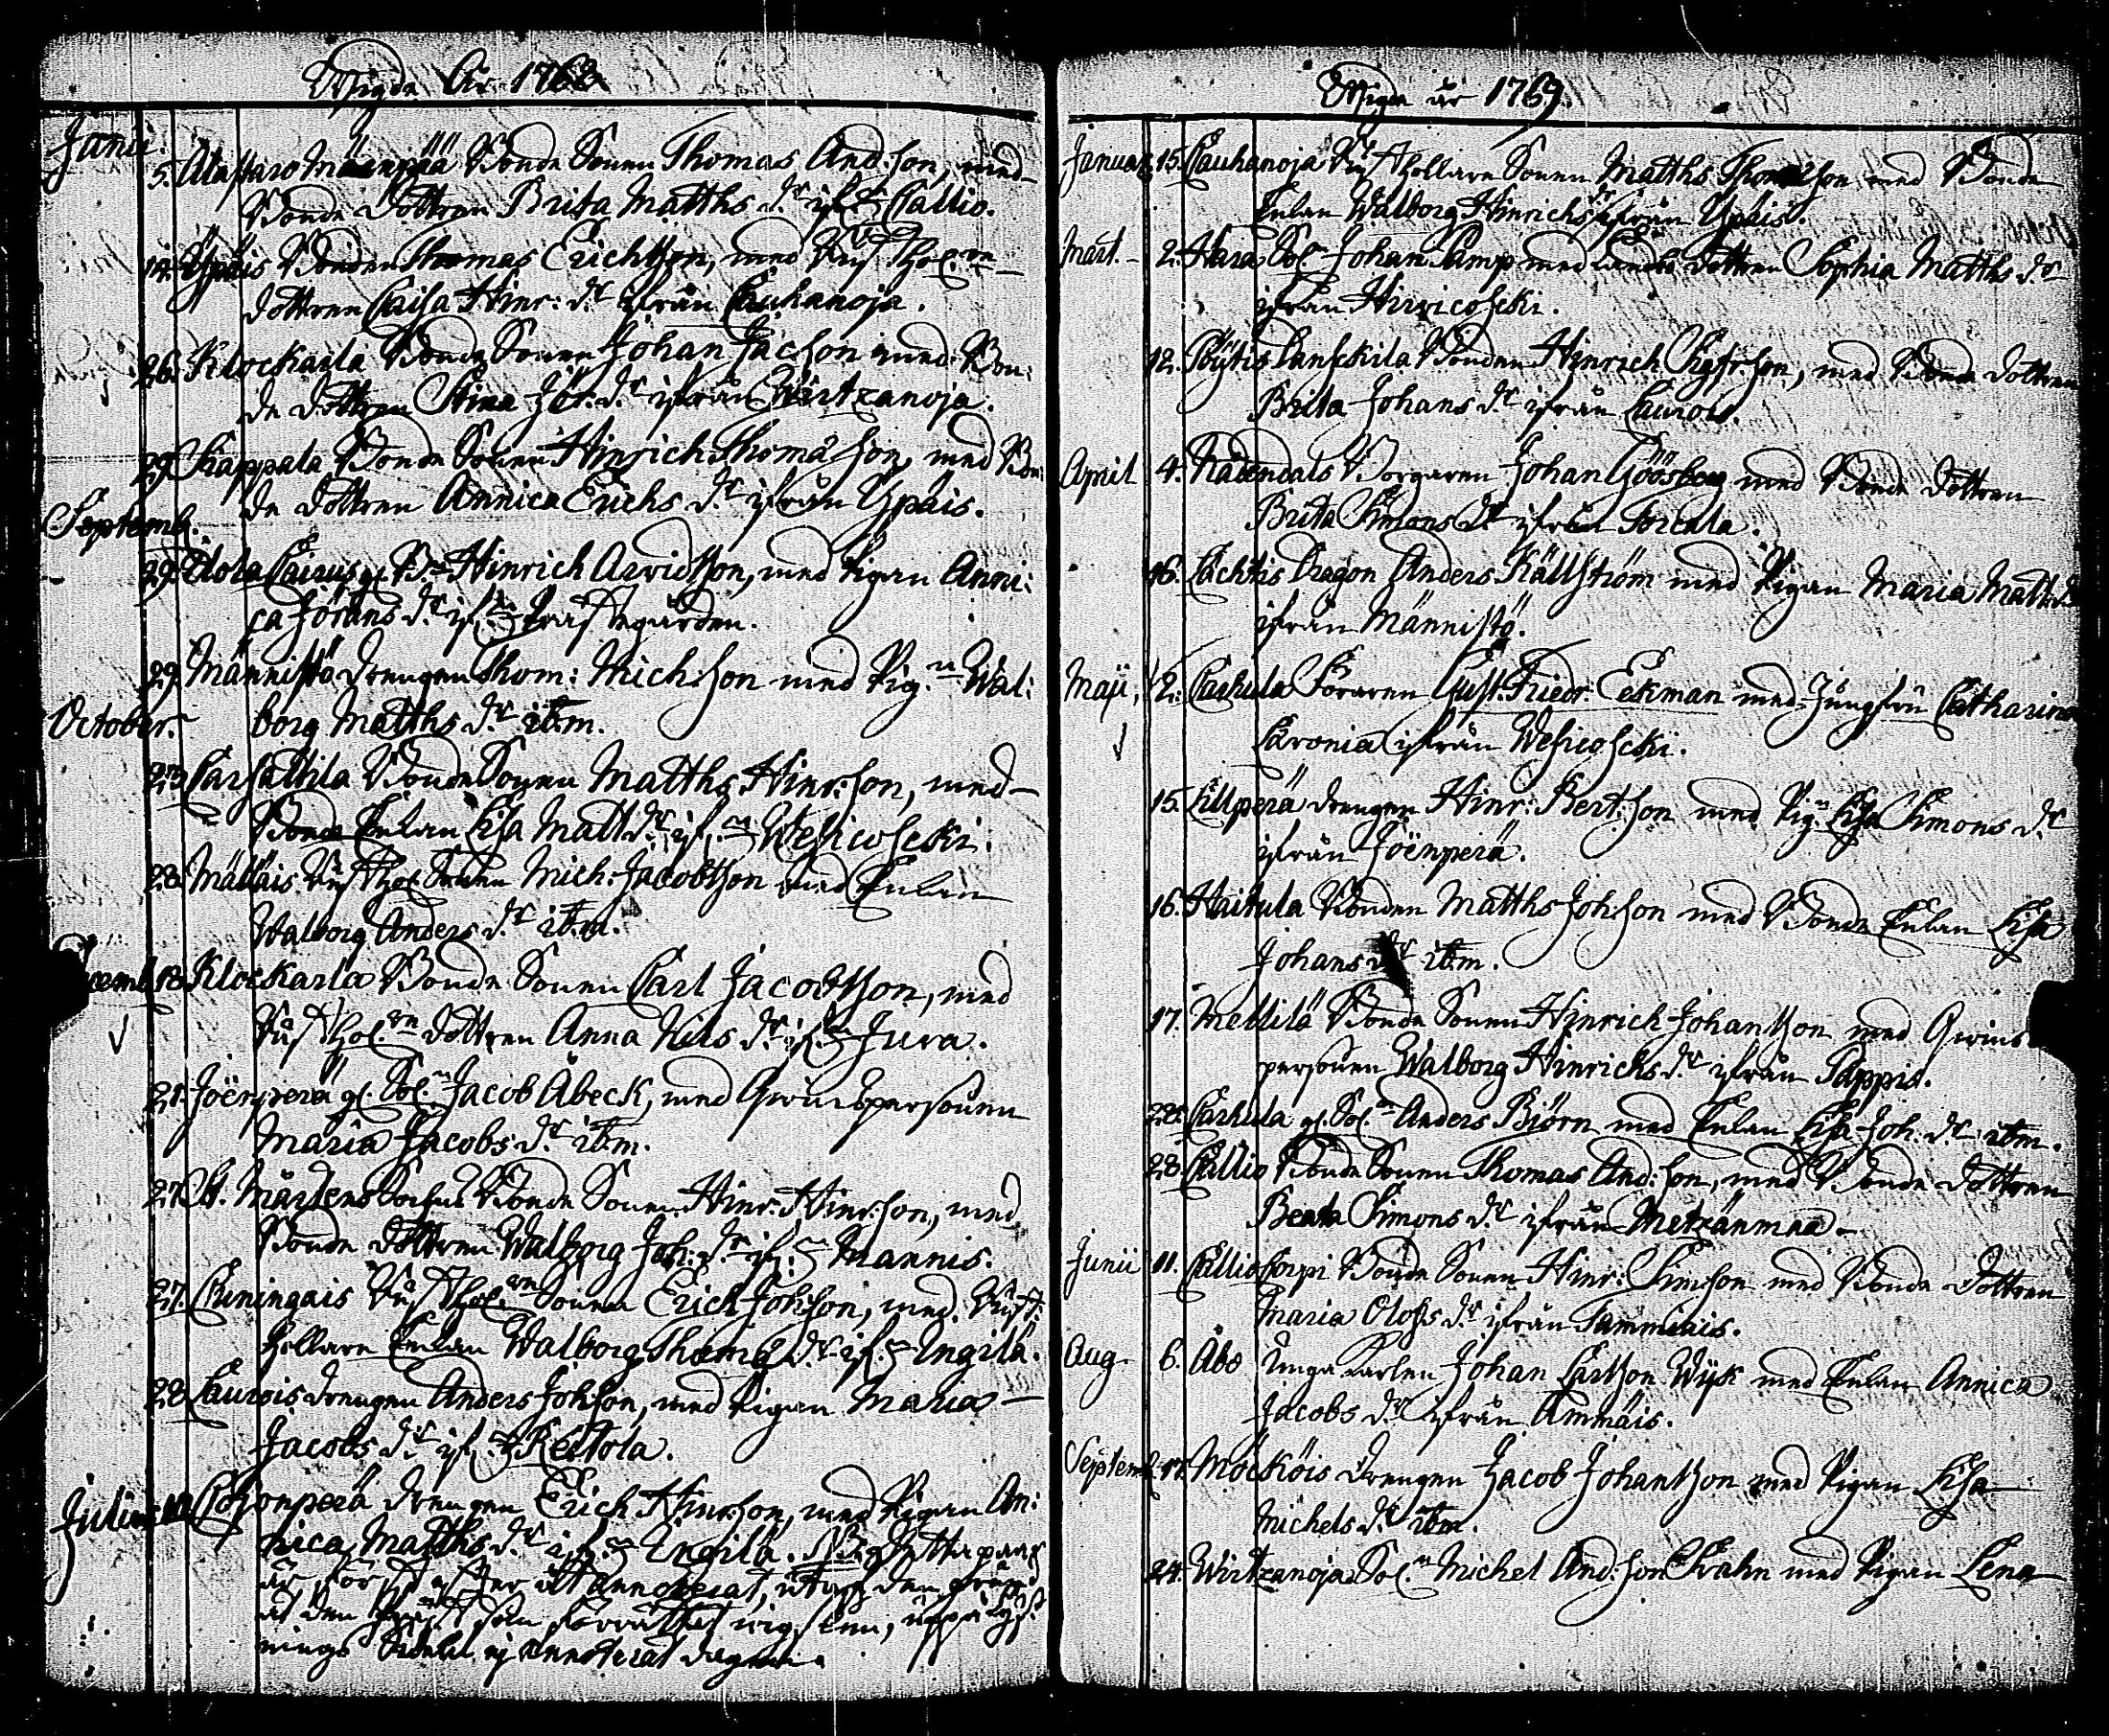 Wigde År 1768
Janu:
5. Alastaro Mäenpää Bonde Sonen Thomas And:son, med
Bonde Dottren Brita Matths dr ifrn Callio.
12. Ypäis Bonden Thomas Erichsson, med Rust Hol:re
dottren Caisa Hinr: dr ifrån Cauhanoja.
26. Klockarla Bonde Sonen Johan Jacson med Bon:
de dottren Stina Jör: dr ifrån Wirtzanoja.
29. Kappala Bonde Sonen Hinrich Thomasson, med Bon:
de dottren Annica Erichs dr ifrån Ypäis.
Septemb.
29. Cairus gl. Hinrich Arvidsson, med Pigan Anni:
ca Jörans dr ifrn Prästegården.
29. Männistö drengen Thom: Mich:son med Pig:n Wal:
October. borg Matths dr ibm.
23. Carsattila Bonde Sonen Matths Hinr:son, med
Bonde Enkan Lisa Matt dr ifrn Wesicoscki.
28. Mällais Rust Hol: Sonen Mich: Jacobsson med Enkan
Walborg Anders dr ibm.
18. Klockarla Bonde Sonen Carl Jacobsson, med
Rust Hol:re dottren Anna Nils dr ifrn Jura.
21. Joenperä gl. Sol:n Jacob Åbeck, med Qwinspersonen
Maria Jacobs dr ibm.
27. St. Mårtens Sochn Bonde Sonen Hinr: Hinr:son, med
Bonde dottren Walborg Joh: dr ifrn Mannis.
27. Cuningais Rust Hol:re Sonen Erich Johsson, med Rust:
hollare Enkan Walborg Thomæ dr ifrn Ungilä.
28. Laurois drengen Anders Johsson, med Pigan Maria
Jacobs dr ifrn Keltola.
Julius 12 Pohjonperä drengen Erich Hinr:son, med Pigan An:
nica Matths dr ifrn Ungilä. NB. detta paar
är först efter åt annoterat, utaf den orsak
at den Präst som förrättat wigslen, uppå Lys:
nings Sedeln ej annoterat dagen.
Wigde år 1769.
Januar. 15. Cauhanoja Rust Hollare Sonen Matths Thomasson med Bonde
Enkan Walborg Hinrichs dr ifrån Ypäis.
Mart. 2. Hara Sol:n Johan Lamp med Bonde dottren Sophia Matths dr
ifrån Hirvicoscki.
12. Pöytis Lanskila Bonden Hinrich Sigfr:son, med Bonde dottren
Brita Johans dr ifrån Laurois.
April 4. Nådendals Borgaren Johan Göösberg med Bonde dottren
Brita Simons dr ifrån Torcala.
16. Lachtis Dragon Anders Källström med Pigan Maria Matt dr
ifrån Männistö.
Maji, 2. Carhula Föraren Gust: Friedr: Eekman med Jungfru Catharina
Caronia ifrån Wesicoscki.
15. Killperä drengen Hinr: Bert:son med Pig:n Lisa Simons dr
ifrån Joënperä.
16. Haitula Bonden Matths Johsson med Bonde Enkan Lisa
Johans dr ibm.
17. Mellilä Bonde Sonen Hinrich Johansson med Qwins
personen Walborg Hinrichs dr ifrån Pappis.
22. Carhula gl. Sol:n Anders Biörn med Enkan Lisa Joh: dr ibm.
28. Callio Bonde Sonen Thomas And:son, med Bonde dottren
Beata Simons dr ifrån Metzänmaa
Junii 11. Callio Corpi Bonde Sonen Hinr: Simsson med Bonde dottren
Maria Olofs dr ifrån Tammiais.
Aug. 6. Åbo Unga Karlen Johan Carlsson Wijk med Enkan Annica
Jacobs dr ifrån Ammäis.
Septemb. 17. Mockois drengen Jacob Johansson med Pigan Lisa
Michels dr ibm.
24. Wirtzanoja Sol:n Michel And:son Strahn med Pigan Lena